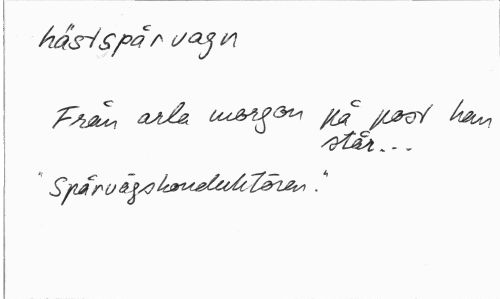 hästspårvagn
Från arla morgon på post han
står...
"Spårvägskonduktören."